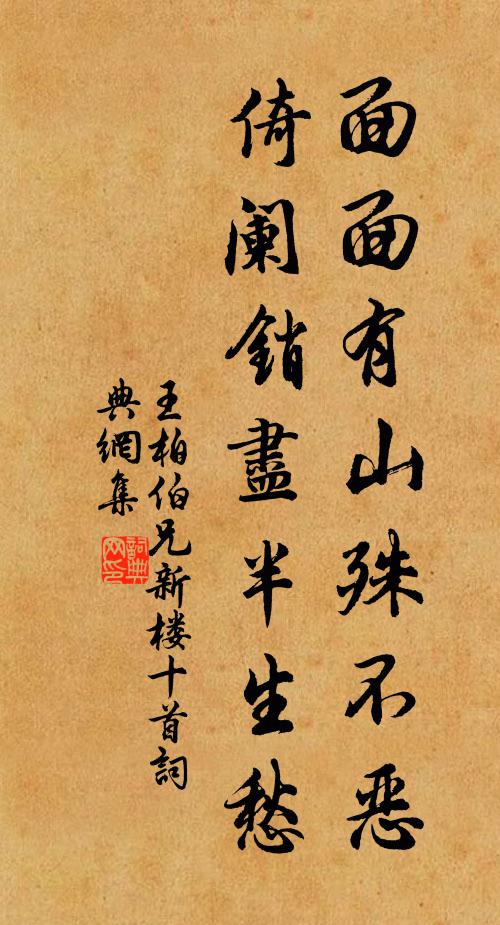 面面有山殊不恶
倚阑销盡半生愁
王柏伯兄新楼十首詞
典網集
詞典
网印